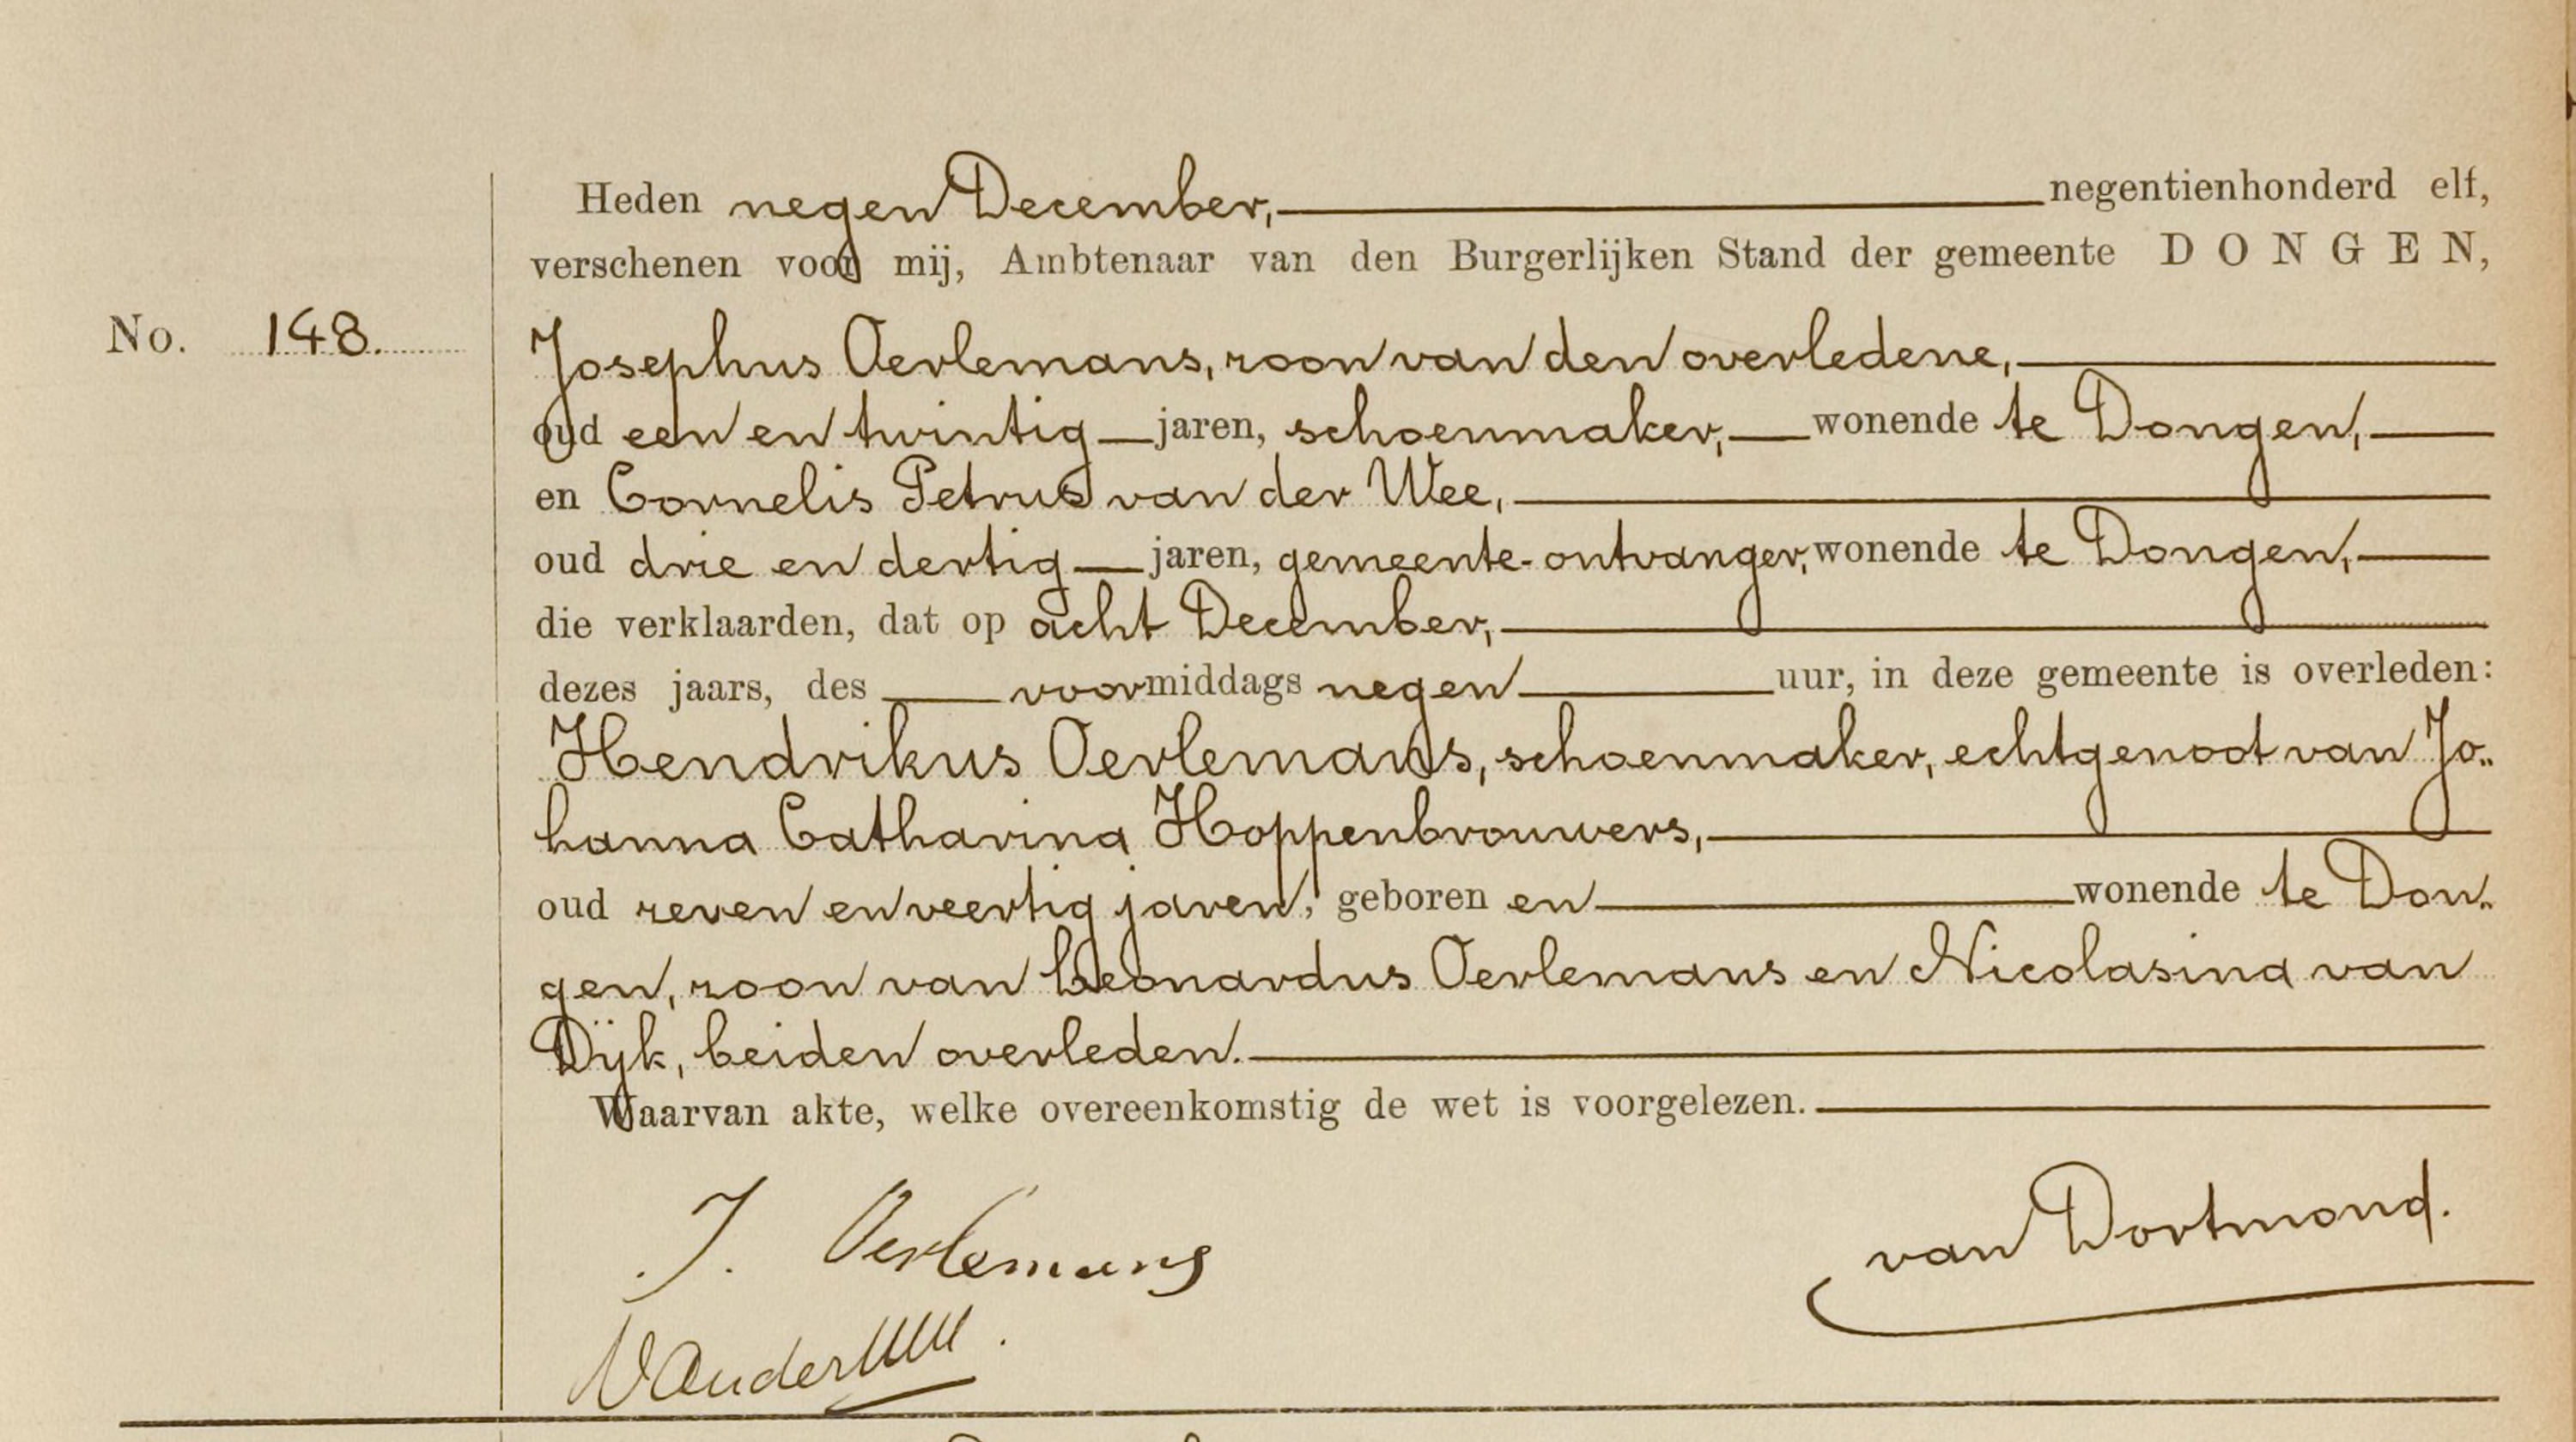 Heden negen December, negentienhonderd elf,
verschenen voor mij, Ambtenaar van den Burgerlijken Stand der gemeente DONGEN,
No. 148.
Josephus Oerlemans, zoon van den overledene,
oud een en twintig jaren, schoenmaker, wonende te Dongen,
en Cornelis Petrus van der Wee,
oud drie en dertig jaren, gemeente-ontvanger, wonende te Dongen,
die verklaarden, dat op acht December,
dezes jaars, des voormiddags negen uur, in deze gemeente is overleden:
Hendrikus Oerlemans, schoenmaker, echtgenoot van Jo„
hanna Catharina Hoppenbrouwers,
oud zeven en veertig jaren, geboren en wonende te Don„
gen, zoon van Leonardus Oerlemans en Nicolasina van
Dijk, beiden overleden.
Waarvan akte, welke overeenkomstig de wet is voorgelezen.
J. Oerlemans
van Dortmond.
VanderWee.